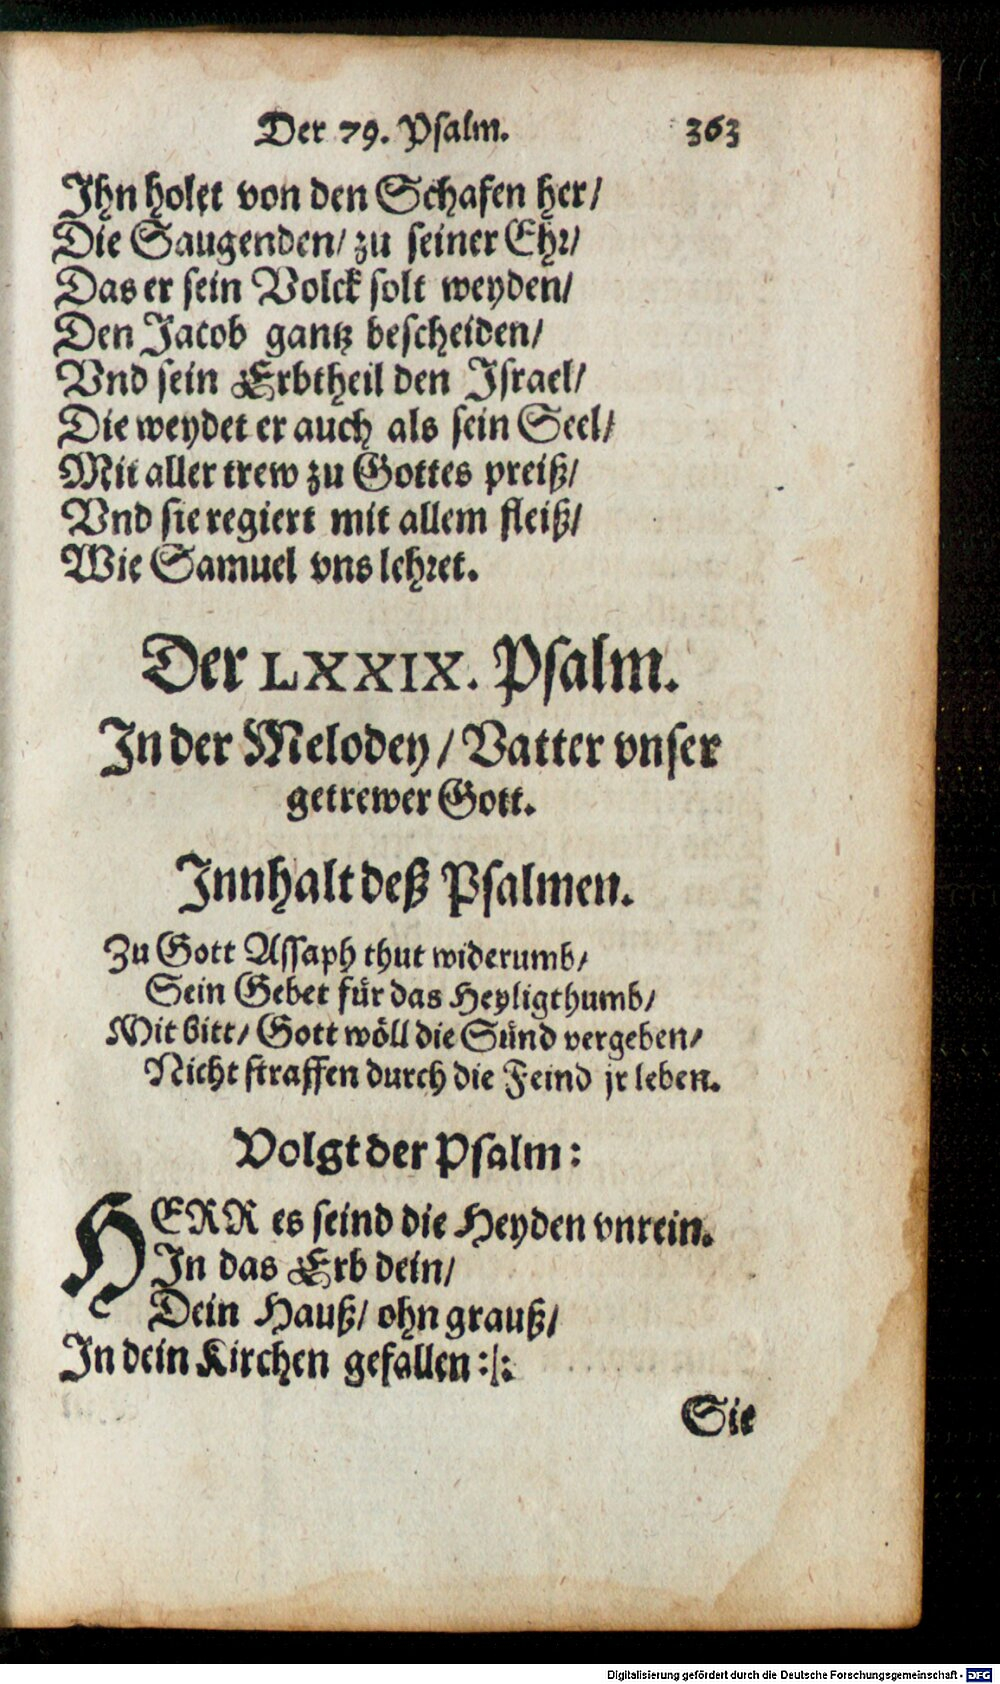 Der 79. Psalm. 363
Ihn holet von den Schafen her/
Die Saugenden/ zu seiner Ehr/
Das er sein Volck solt weyden/
Den Jacob gantz bescheiden/
Vnd sein Erbtheil den Israel/
Die weydet er auch als sein Seel/
Mit aller trew zu Gottes preiß/
Vnd sie regiert mit allem fleiß/
Wie Samuel vns lehret.
Der LXXIX. Psalm.
In der Melodey / Vatter vnser
getrewer Gott.
Innhalt deß Psalmen.
Zu Gott Assaph thut widerumb/
Sein Gebet für das Heyligthumb/
Mit bitt/ Gott wöll die Sünd vergeben/
Nicht straffen durch die Feind jr leben.
Volgt der Psalm:
HERR es seind die Heyden vnrein.
In das Erb dein/
Dein Hauß/ ohn grauß/
In dein Kirchen gefallen :|:
Sie
Digitalisierung gefördert durch die Deutsche Forschungsgemeinschaft - DFG